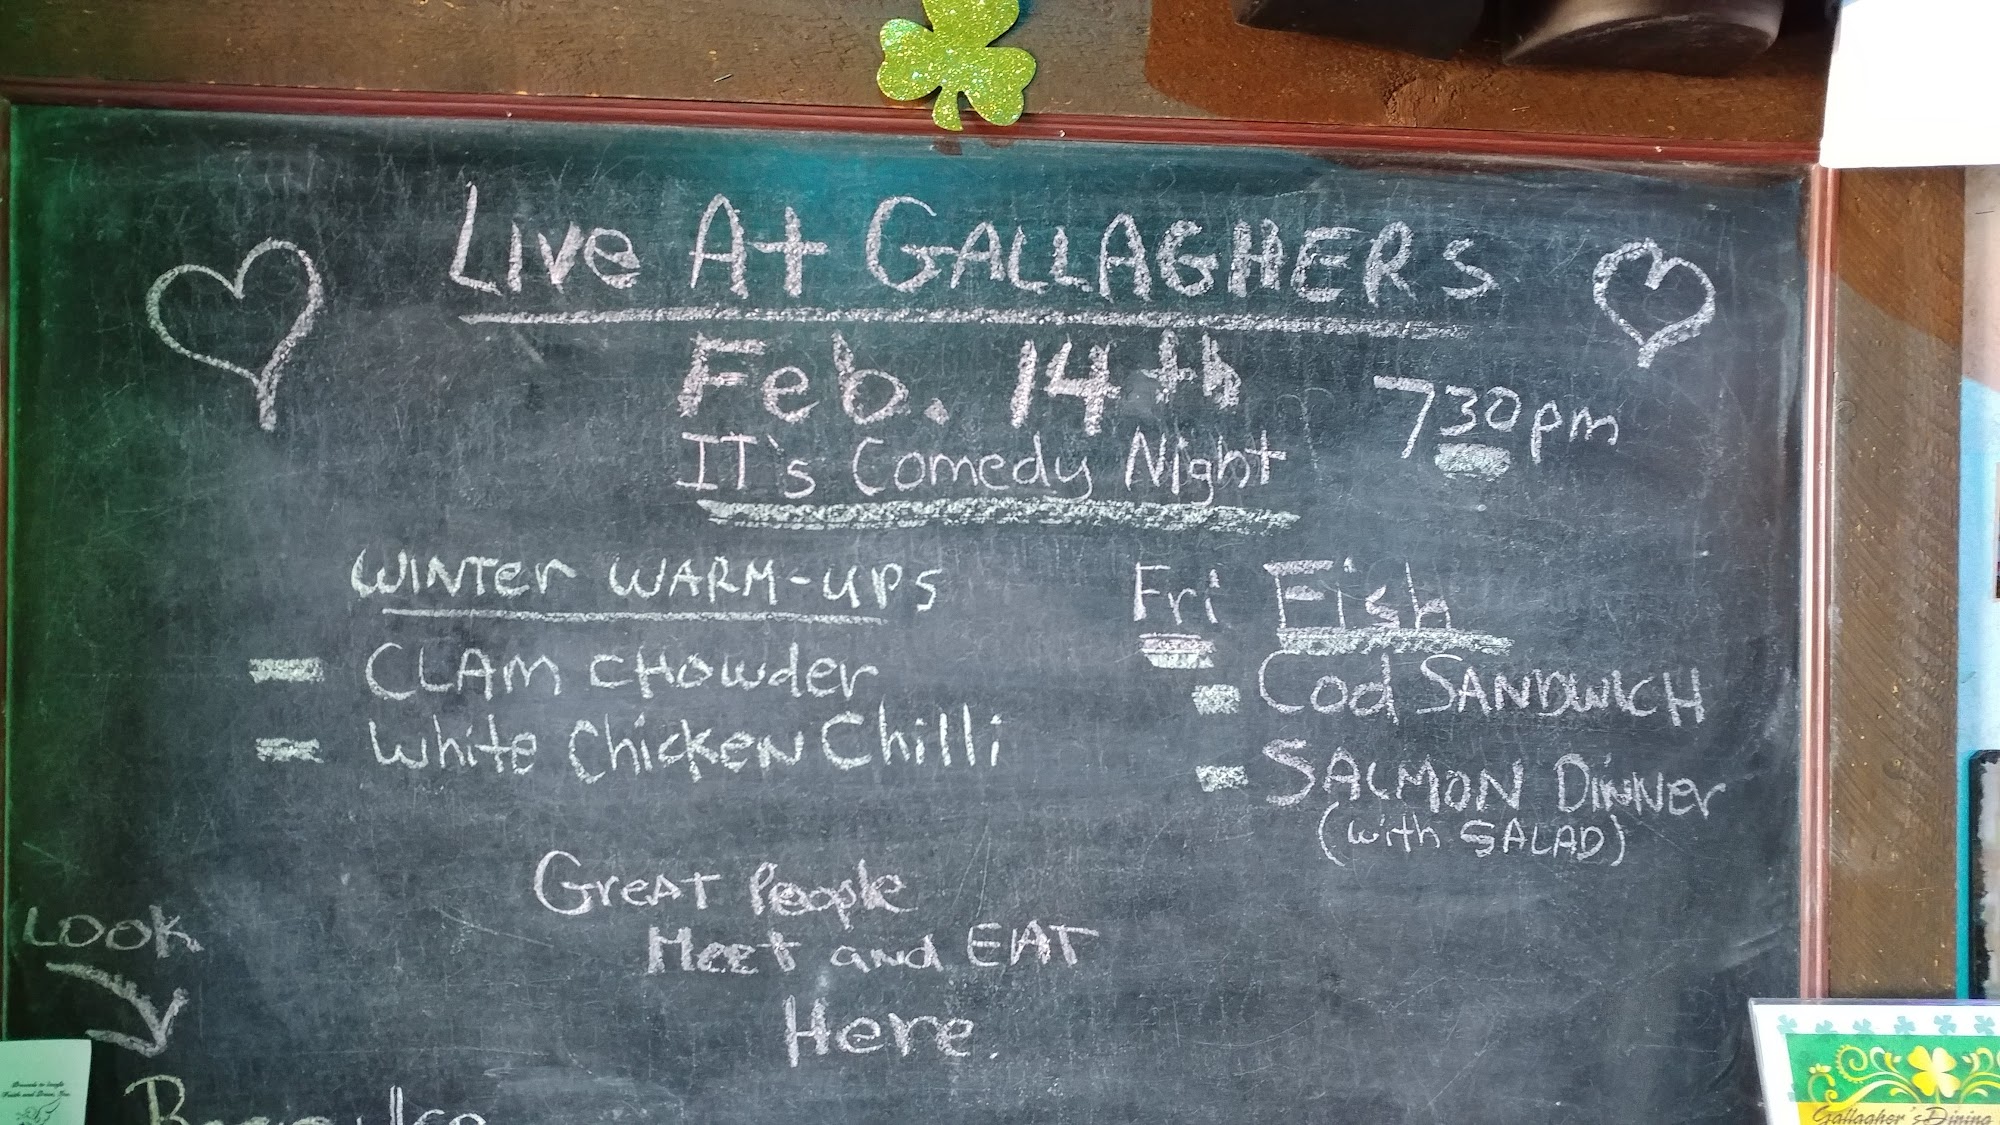 Live At GALLAGHERS
Feb. 14th
730pm
IT's Comedy Night
WINTer WARM-UPS
CLAM CHOWder
White ChicKEN Chilli
Fri Fish
Cod SANDWICH
SALMON DiNNer
(with SALAD)
GreAT People
Meet and EAT
Here.
LOOK
Gallagher's Dining